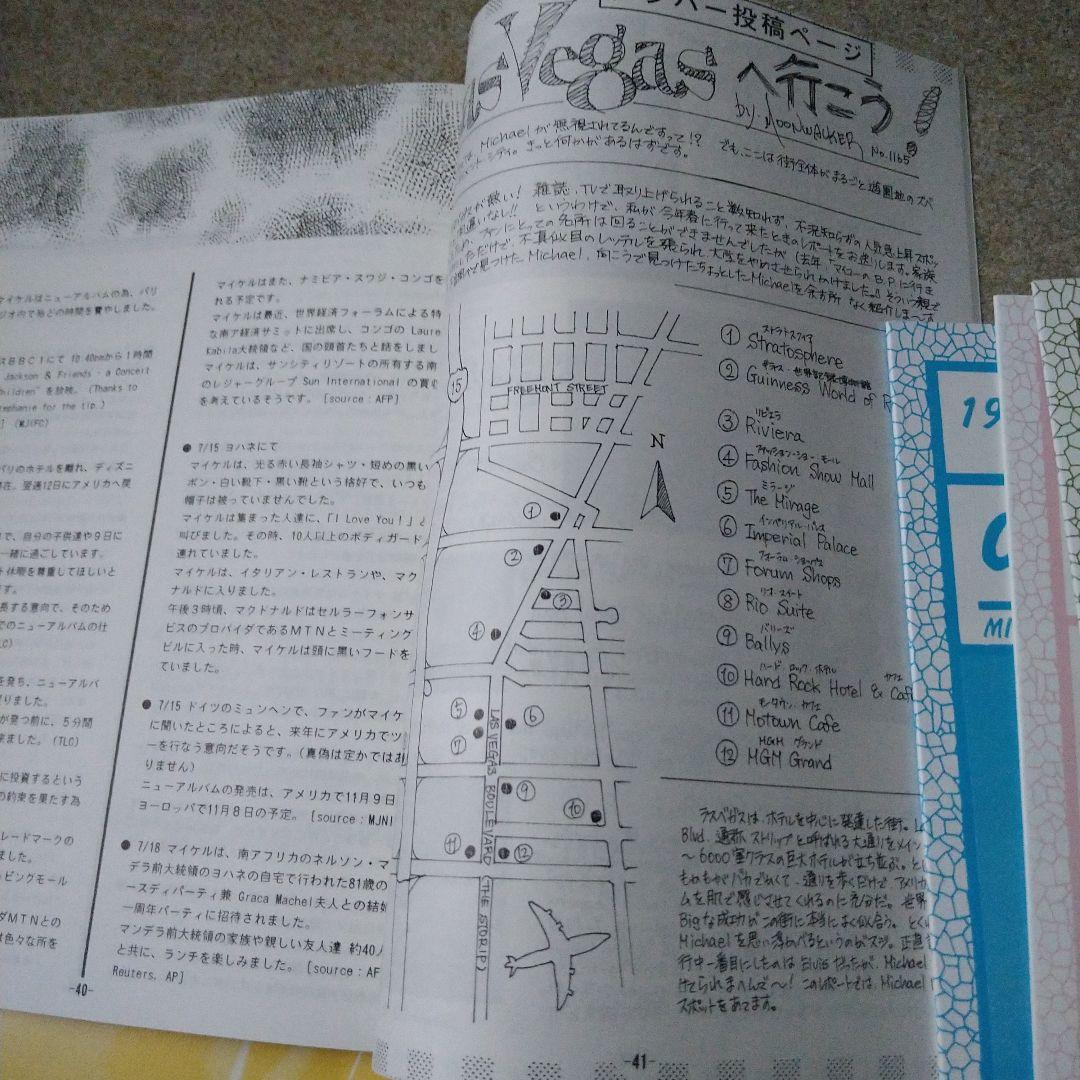 マイケルはニューアルバムの為、パリ
ジオ内で殆どの時間を費やしました。
スBBC1にて 10:40pmから1時間
Jackson & Friends - a Concert
hildren" を放映。(Thanks to
ephanie for the tip.)
] (MJIFC)
パリのホテルを離れ、ディズニ
在。翌週12日にアメリカへ戻
で、自分の子供達や9日に
一緒に過ごしています。
ト休暇を尊重してほしいと
す。
長する意向で、そのため
でのニューアルバムの仕
LC)
を発ち、ニューアルバ
りました。
が発つ前に、5分間
来ました。(TLC)
に投資するという
の約束を果たす為
レードマークの
ました。
ッピングモール
ダMTNとの
は色々な所を
-40-
マイケルはまた、ナミビア・スワジ・コンゴを
れる予定です。
マイケルは最近、世界経済フォーラムによる特
な南ア経済サミットに出席し、コンゴの Laure
Kabila大統領など、国の頭首たちと話をしまし
マイケルは、サンシティリゾートの所有する南
のレジャーグループ Sun International の買収
を考えているそうです。 [source:AFP]
● 7/15 ヨハネにて
マイケルは、光る赤い長袖シャツ・短めの黒い
ボン・白い靴下・黒い靴という格好で、いつも
帽子は被っていませんでした。
マイケルは集まった人達に、「I Love You!」と
叫びました。その時、10人以上のボディガード
連れていました。
マイケルは、イタリアン・レストランや、マク
ナルドに入りました。
午後3時頃、マクドナルドはセルラーフォンサ
ビスのプロバイダであるMTNとミーティング
ビルに入った時、マイケルは頭に黒いフードを
ていました。
● 7/15 ドイツのミュンヘンで、ファンがマイケ
に聞いたところによると、来年にアメリカでツ
ーを行なう意向だそうです。(真偽は定かではあ
りません)
ニューアルバムの発売は、アメリカで11月9日
ヨーロッパで11月8日の予定。 [source:MJNI
● 7/18 マイケルは、南アフリカのネルソン・マ
デラ前大統領のヨハネの自宅で行われた81歳の
ースディパーティ兼 Graca Machel夫人との結婚
一周年パーティに招待されました。
マンデラ前大統領の家族や親しい友人達 約40人
と共に、ランチを楽しみました。 [source:AF
Reuters, AP]
ンバー投稿ページ
Vegas へ行こう!
by MOONWALKER No.1165
Michaelが無視されてるんですって!? でも、ここは街全体がまるごと遊園地のズバ
きっと何かがあるはずです。
雑誌、TVで取り上げられること数知れず、不況知らずの人気急上昇スポッ
違いなし!! というわけで、私が今年春に行って来たときのレポートをお送りします。家族
ファンにとっての名所は回ることができませんでしたが
不真面目のレッテルを張られ、大学をやめさせられかけました。
見つけたMichael、向こうで見つけたちょっとしたMichaelを余す所なく紹介しま〜す
15
FREEMONT STREET
N
LAS VEGAS BOULEVARD (THE STORIP)
① ② ③ ④ ⑤ ⑥ ⑦ ⑨ ⑩ ⑪ ⑫
① Stratosphere
② Guinness World of R
③ リビエラ Riviera
④ ファッション・ショー・モール Fashion Show Mall
⑤ ミラージ The Mirage
⑥ インペリアル・パレス Imperial Palace
⑦ Forum Shops
⑧ リオ・スイート Rio Suite
⑨ バリーズ Ballys
⑩ ハード・ロック・ホテル カフェ Hand Rock Hotel & Cafe
⑪ モータウン・カフェ Motown Cafe
⑫ MGM グランド MGM Grand
ラスベガスは、ホテルを中心に発達した街。L
Blvd. 通称ストリップと呼ばれる大通りをメイン
〜6000室クラスの巨大ホテルが立ち並ぶ。とい
もかもがバカでかくて、通りを歩くだけで、アメリカ
ムを肌で感じさせてくれるのに充分だ。世界
Bigな成功がこの街に本当によく似合う。とくい
Michaelを思い浮かべるというのがスジ。正直
行中一番目にしたのはElvisだったが、Michael
けてられまへんで〜! このレポートでは、Michael
スポットをあてます。
-41-
19
MI